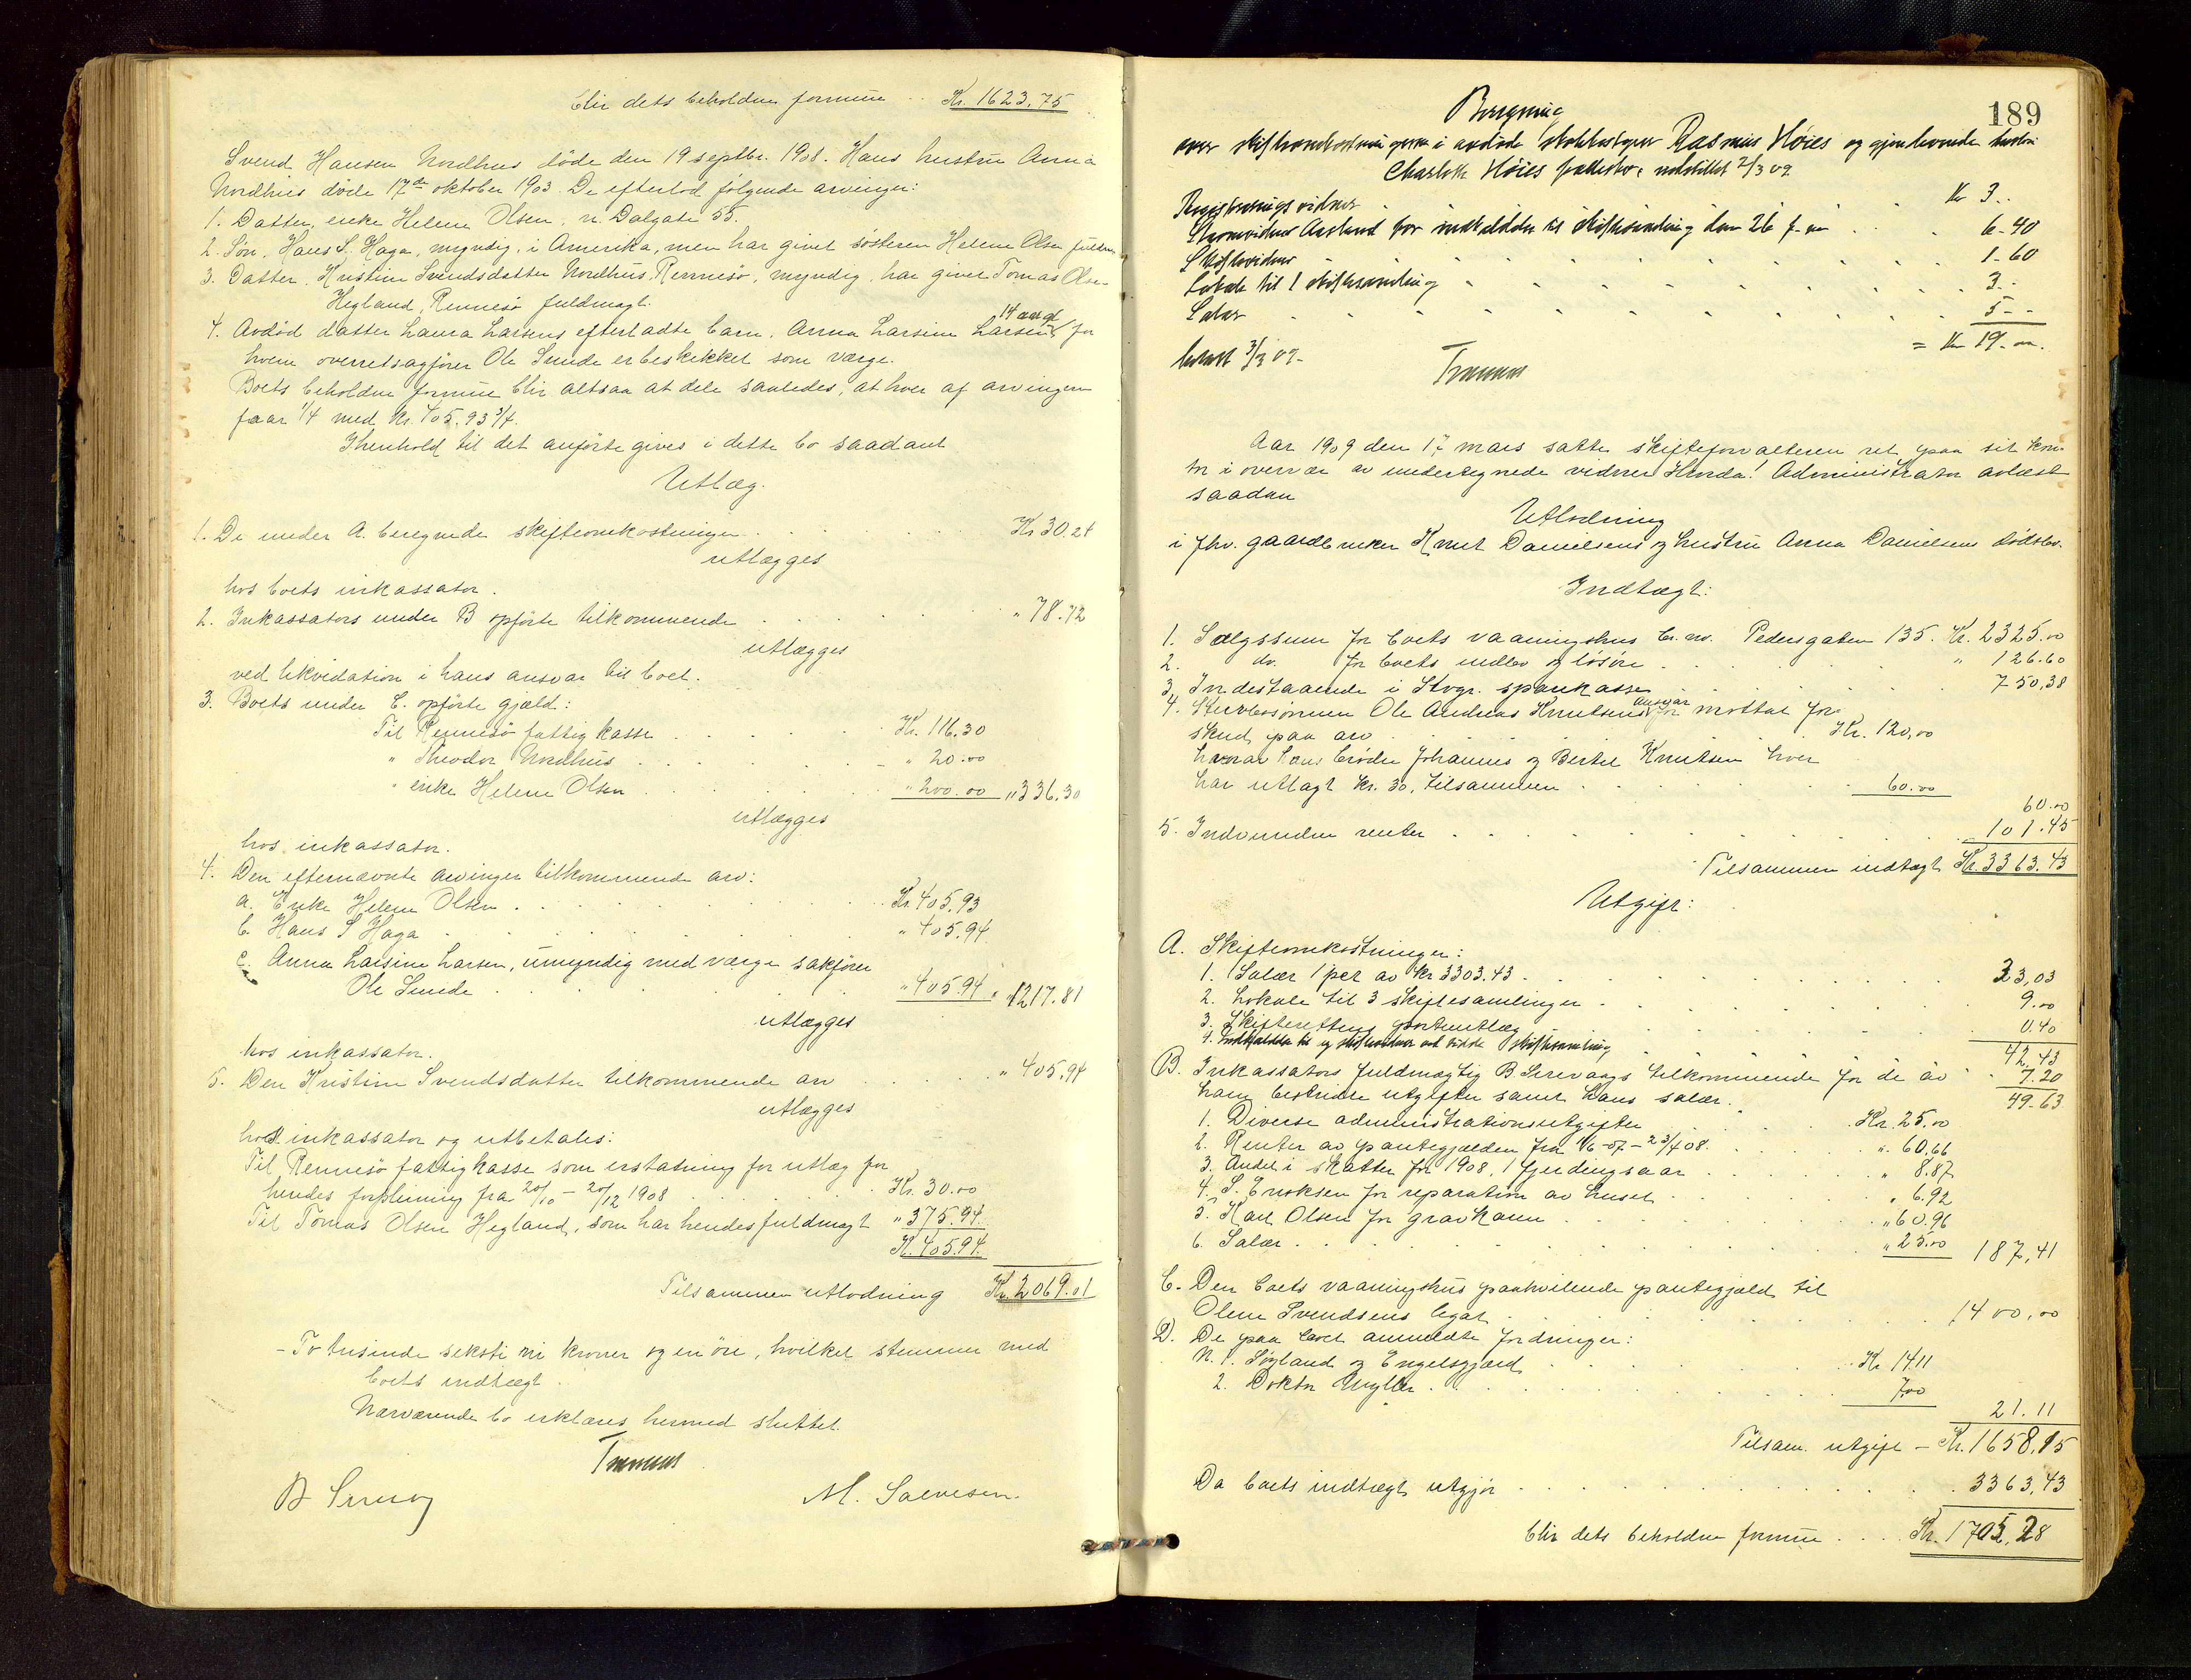 blir dets beholdne formue .. Kr. 1623.75
Svend Hansen Nordhus döde den 19 septbr. 1908. Hans hustru Anna
Nordhus döde 17de oktober 1903. De efterlod følgende arvinger:
1. Datter, enke Helene Olsen, n. Dalgate 55.
2. Søn, Hans S. Haga, myndig, i Amerika, men har givet søsteren Helene Olsen fuldm.
3. Datter, Kristine Svendsdatter Nordhus, Rennesø, myndig, har givet Tomas Olsen
Hegland, Rennesø fuldmagt.
4. Avdød datter Laura Larsens efterladte barn, Anna Larsine Larsen, 14 aar gl for
hvem overretssagfører Ole Sunde er beskikket som værge.
Boets beholdne formue blir altsaa at dele saaledes, at hver af arvingene
faar 1/4 med kr. 405.93 3/4.
I henhold til det anførte gives i dette bo saadant
Utlæg.
1. De under A. beregnede skifteomkostninger . . . Kr 30.24
utlægges
hos boets inkassator.
2. Inkassators under B opførte tilkommende . . . " 78.72
utlægges
ved likvidation i hans ansvar til boet.
3. Boets under C. opførte gjæld:
Til Rennesø fattigkasse . . . Kr. 116.30
" Theodor Nordhus . . . " 20.00
" enke Helene Olsen . . . " 200.00 " 336.30
utlægges
hos inkassator.
4. Den efternævnte arvinger tilkommende arv:
a. Enke Helene Olsen . . . Kr. 405.93
b. Hans S Haga . . . " 405.94
c. Anna Larsine Larsen, umyndig med værge sakfører
Ole Sunde . . . " 405.94 " 1217.81
utlægges
hos inkassator.
5. Den Kristine Svendsdatter tilkommende arv . . . " 405.94
utlægges
hos inkassator og utbetales:
Til Rennesø fattigkasse som erstatning for utlæg for
hendes forpleining fra 20/10 - 20/12 1908 . . . Kr. 30.00
Til Tomas Olsen Hegland, som har hendes fuldmagt " 375.94
Kr. 405.94
Tilsammen utlodning Kr. 2069.01
- To tusinde seksti ni kroner og en öre, hvilket stemmer med
boets indtægt.
Nærværende bo erklæres hermed sluttet.
M. Salvesen.
189
Beregning
over skifteomkostningerne i avdøde Rasmus Høies og gjenlevende hustru
Charlotte Høies fællesbo, utstillet 2/3 09
Registreringsvidner . . . Kr 3..
Stevnevidner Aarland for indkaldelse til skiftesamling den 26 f. m . . . 6-40
Skiftevidner . . . 1-60
Lokale til 1 skiftesamling . . . 3..
Salær . . . 5--
= Kr 19.00.
3/3 09-
Aar 1909 den 17 mars satte skifteforvalteren ret paa sit kon-
tor i overvær av undertegnede vidner. Hvorda! Administrator avlæst
saadan
Utlodning
i fhv. gaardbruker Knut Danielsens og hustru Anna Danielsens dødsbo.
Indtægt:
1. Salgssum for boets vaaningshus b. no. Pedersgaten 135. Kr. 2325.00
2. do. for boets indbo og løsøre . . . " 126.60
3. Indestaaende i Stvgr. sparekasse . . . 750,38
4. Stervbosønnen Ole Andreas Knutsens ansvar for mottat for-
skud paa arv . . . Kr. 120,00
hvorav hans brødre Johannes og Bertel Knutsen hver
har utlagt kr. 30, tilsammen . . . 60.00
60.00
5. Indvundne renter . . . 101.45
Tilsammen indtægt Kr. 3363.43
Utgift:
A. Skifteomkostninger:
1. Salær 1 pct av kr 3303.43 . . . 33,03
2. Lokale til 3 skiftesamlinger . . . 9.00
3. Skifterettens portoutlæg . . . 0.40
42,43
4. Indkaldelse til og skiftevidner ved sidste skiftesamling . . . 7.20
49-63
B. Inkassators fuldmægtig B. Serevaags tilkommende for de av
ham bestridte utgifter samt hans salær.
1. Diverse administrationsutgifter . . . Kr. 25.00
2. Renter av pantegjælden fra 1/6-07 - 23/4 08. . . . " 60,66
3. Andel i skatter for 1908, 1 fjerdingsaar . . . " 8.87
4. S. Eriksen for reparation av huset . . . " 6.92
5. Karl Olsen for gravkam . . . " 60.96
6. Salær . . . " 25.00 187,41
C. Den boets vaaningshus paahvilende pantegjæld til
Olene Svendsens legat . . . 1400,00
D. De paa boet anmeldte fordringer:
N. 1. Søyland og Engelsgjærd . . . Kr 14.11
2. Doktor . . . 7,00
21.11
Tilsam. utgift - Kr. 1658,15
Da boets indtægt utgjør . . . 3363,43
blir dets beholdne formue . . . Kr. 1705,28